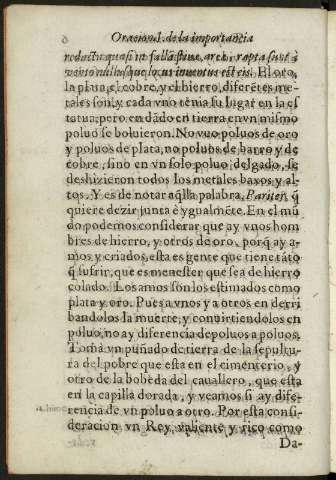 Oracion I. de la importancia
redacta quasi in
a
vento nullusque locus inuentus est eis. El oro,
la plata, el cobre, y el hierro, diferẽtes me-
tales son, y cada vno tenia su lugar en la es
tatua: pero en dãdo en tierra en vn mismo
poluo se boluieron. No vuo poluos de oro
y poluos de plata, no poluos de barro y de
cobre, sino en vn solo poluo delgado, se
deshizieron todos los metales baxos y al-
tos. Y es de notar aq̃lla palabra, Pariter, q̃
quiere dezir junta ẽ ygualmẽte. En el mũ
do podemos considerar que ay vnos hom
bres de hierro, y otros de oro, porq̃ ay a-
mos y criados, esta es gente que tiene tãto
q̃ sufrir, que es menester que sea de hierro
colado. Los amos son los estimados como
plata y oro. Pues a vnos y a otros en derri
bandolos la muerte, y conuirtiendolos en
poluo, no ay diferencia de poluos a poluos.
Toma vn puñado de tierra de la sepultu-
ra del pobre que esta en el cimenterio, y
otro de la bobeda del cauallero, que esta
en la capilla dorada, y veamos si ay dife-
rencia de vn poluo a otro. Por esta consi-
deracion vn Rey, valiente y rico como
Da-